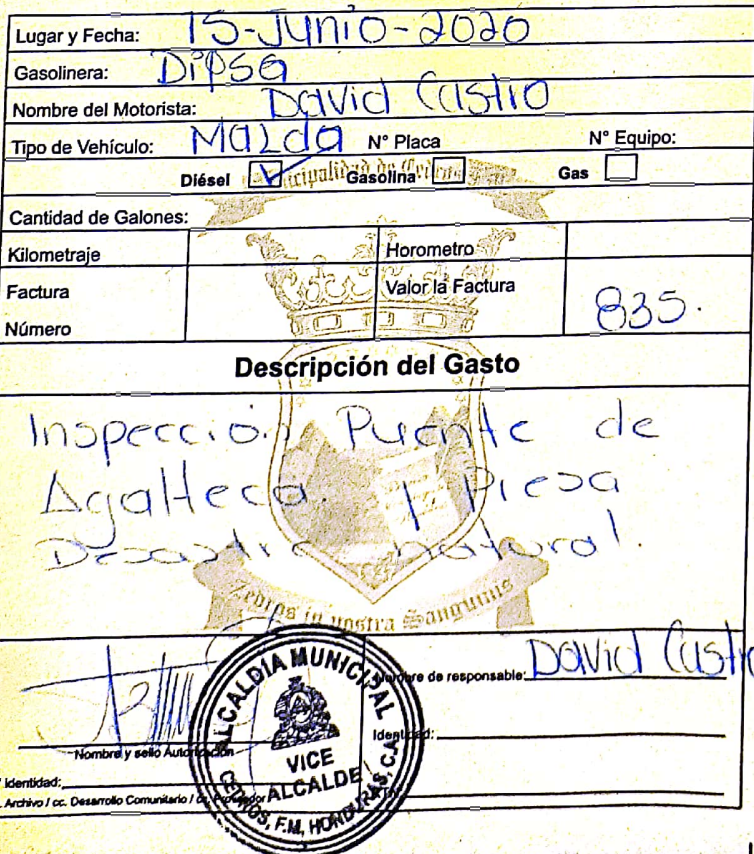 Lugar y Fecha: 15-Junio-2020
Gasolinera: Dipsa
Nombre del Motorista: David Castro
Tipo de Vehículo: Mazda N° Placa N° Equipo:
Diésel Gasolina Gas
Cantidad de Galones:
Kilometraje Horometro
Factura Valor la Factura 835.
Número
Descripción del Gasto
Inspección Puente de
Agalteca. y Presa
Desastre natural.
Zedros in nostra Sanguinis
Nombre de responsable: David Castro
Identidad:
Nombre y sello Autorización
Identidad:
Archivo / cc. Desarrollo Comunitario / cc. Proveedor
ALCALDIA MUNICIPAL
VICE
ALCALDE
CEDROS, F.M, HONDURAS, C.A.